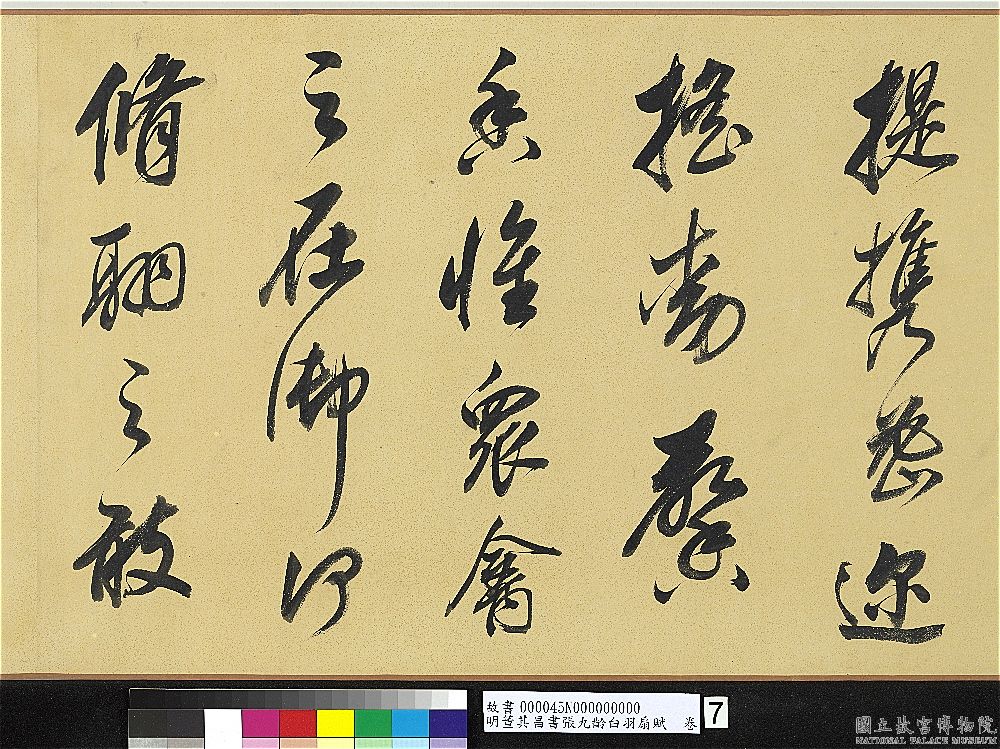 提携密迩
搖動馨
香惟眾禽
之在御何
脩翮之敢
故書 000045N000000000
明董其昌書張九齡白羽扇賦 卷
7
國立故宮博物院
NATIONAL PALACE MUSEUM